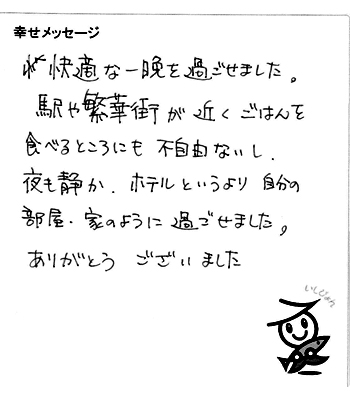 幸せメッセージ
快適な一晩を過ごせました。
駅や繁華街が近くごはんを
食べるところにも不自由ないし、
夜も静か、ホテルというより自分の
部屋・家のように過ごせました。
ありがとうございました